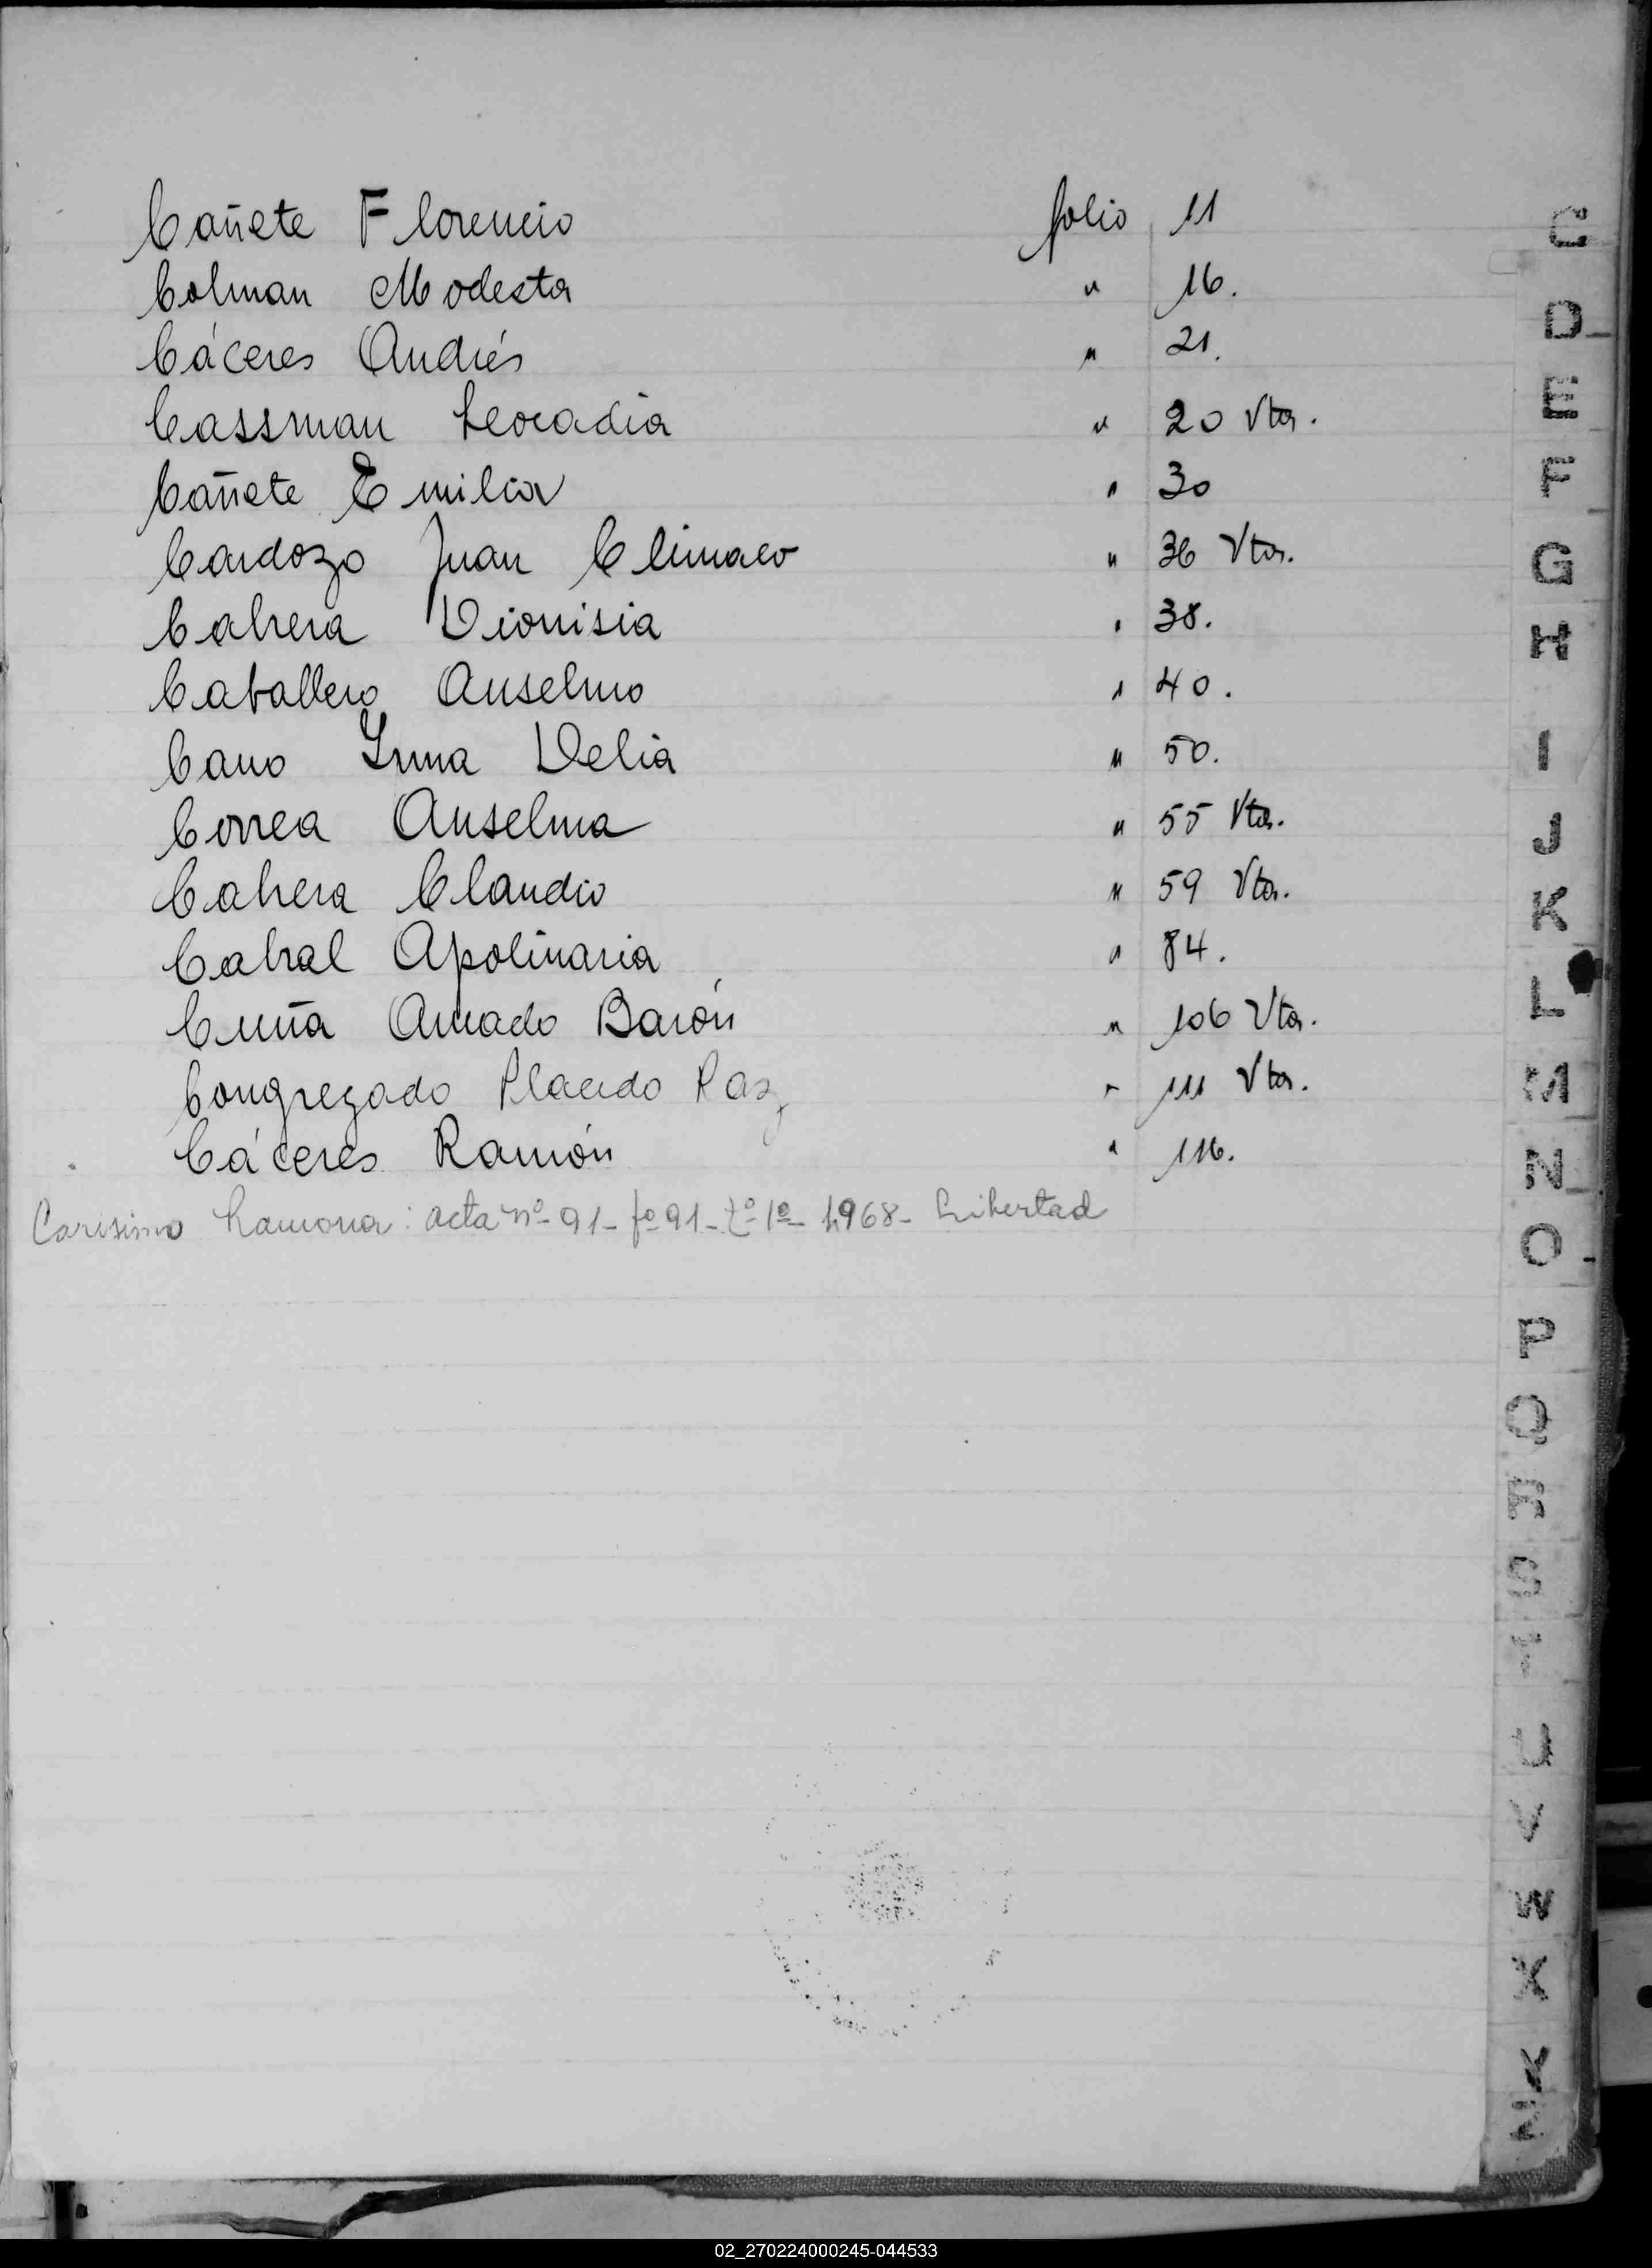 Cañete Florencio folio 11
Colman Modesta " 16.
Cáceres Andrés " 21.
Cassman Leocadia " 20 Vta.
Cañete Emilia " 30
Cardozo Juan Climaco " 36 Vta.
Cabrera Dionisia " 38.
Caballero Anselmo " 40.
Cano Irma Delia " 50.
Correa Anselma " 55 Vta.
Cabrera Claudio " 59 Vta.
Cabral Apolinaria " 84.
Cuña Amado Barón " 106 Vta.
Congregado Placido Paz " 111 Vta.
Cáceres Ramón " 116.
Carisimo Ramona: acta nº 91- fº 91- tº 1º- 1968- Libertad
C
D
E
F
G
H
I
J
K
L
M
N
O
P
Q
R
S
T
U
V
W
X
Y
Z
02_270224000245-044533